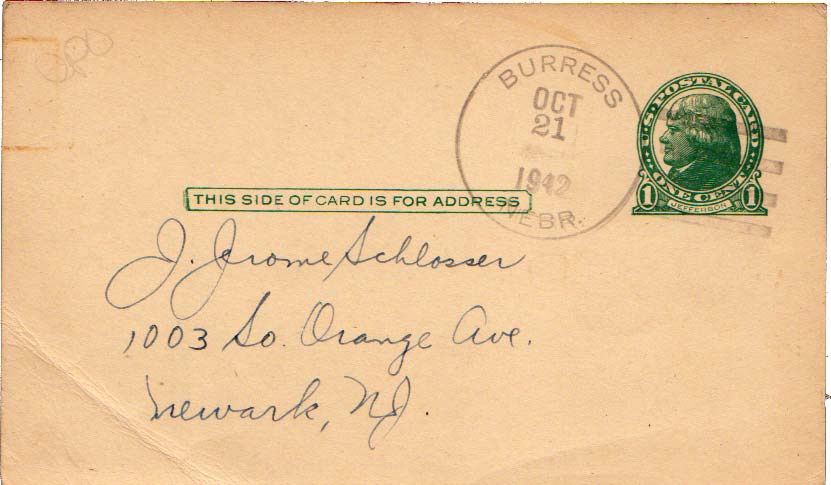 DPO
BURRESS
OCT
21
1942
NEBR.
U.S. POSTAL CARD
ONE CENT
1 JEFFERSON 1
THIS SIDE OF CARD IS FOR ADDRESS
J. Jerome Schlosser
1003 So. Orange Ave.
Newark, NJ.